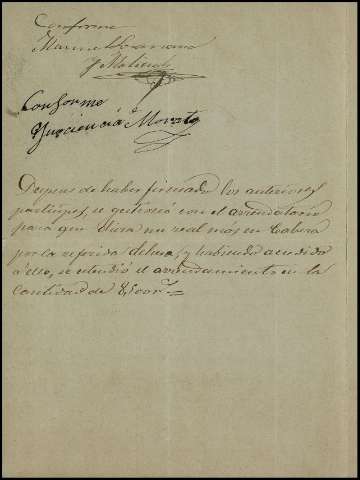 Conforme
Manuel
y Molina
Conforme
Moreto
Despues de haber firmado los anteriores
participes, se gestionó con el arrendatario
para que diera un real mas en cabeza
por la referida dehesa, y habiendo accedido
a ello, se estendió el arrendamiento en la
cantidad de 8,500 r.^s